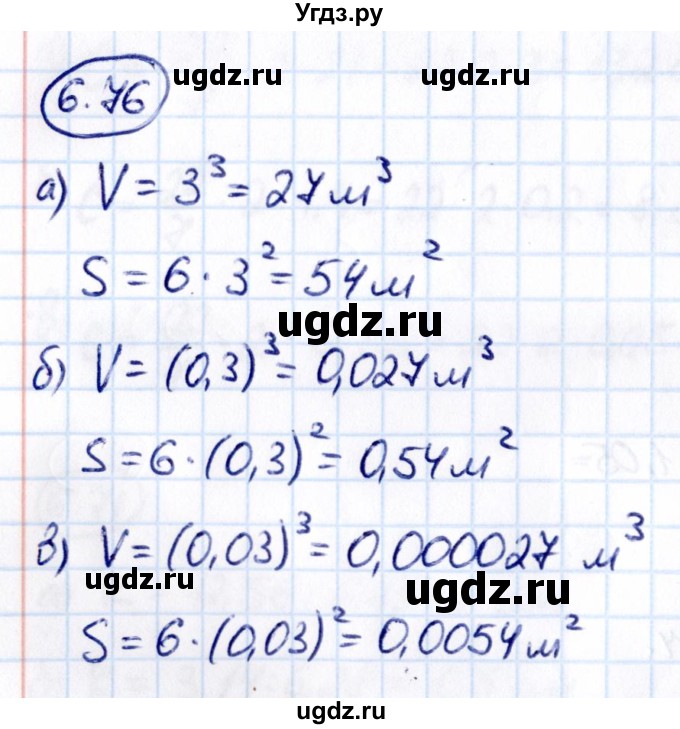 Угдз.ру
6.76
ugdz.ru
ugdz.ru
а) V = 3³ = 27 м³
S = 6 · 3² = 54 м²
ugdz.ru
б) V = (0,3)³ = 0,027 м³
S = 6 · (0,3)² = 0,54 м²
в) V = (0,03)³ = 0,000027 м³
ugdz.ru
ugdz.ru
S = 6 · (0,03)² = 0,0054 м²
ugdz.ru